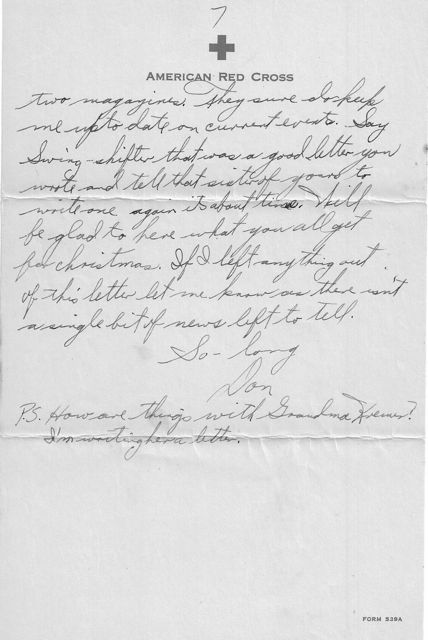 7
AMERICAN RED CROSS
two magazines. They sure do keep
me up to date on current events. Say
Swing-shifter that was a good letter you
wrote and tell that sister of yours to
write one again its about time. Will
be glad to here what you all get
for christmas. If I left anything out
of this letter let me know as there isn't
a single bit of news left to tell.
So-long
Don
P.S. How are things with Grandma Kremer?
I'm writing her a letter.
FORM 539A